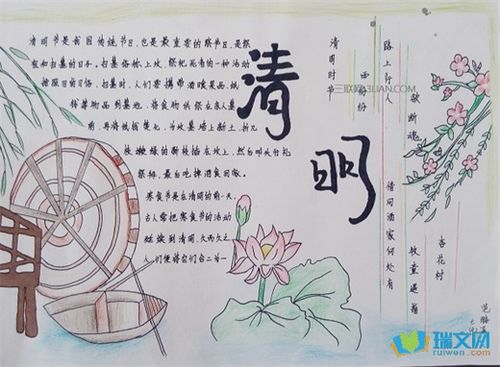 清明节是我国传统节日，也是最重要的祭节日，是祭
祖和扫墓的日子。扫墓俗称上坟，祭祀死者的一种活动
扫墓时，人们要携带酒食果品，纸
钱等物品到墓地，将食物供祭在亲人墓
前，再将纸钱焚化，为坟墓培上新土，折几
枝嫩绿的新枝插在坟上，然后叩头行礼
祭拜，最后吃掉酒食回家。
寒食节是在清明的前一天，
古人常把寒食节的活动
延续到清明，久而久之
人们便将它们合二为一
清明
清明时节
雨纷纷
路上行人
欲断魂
借问酒家何处有
牧童遥指
杏花村
三联网3LIAN.COM
瑞文网
ruiwen.com